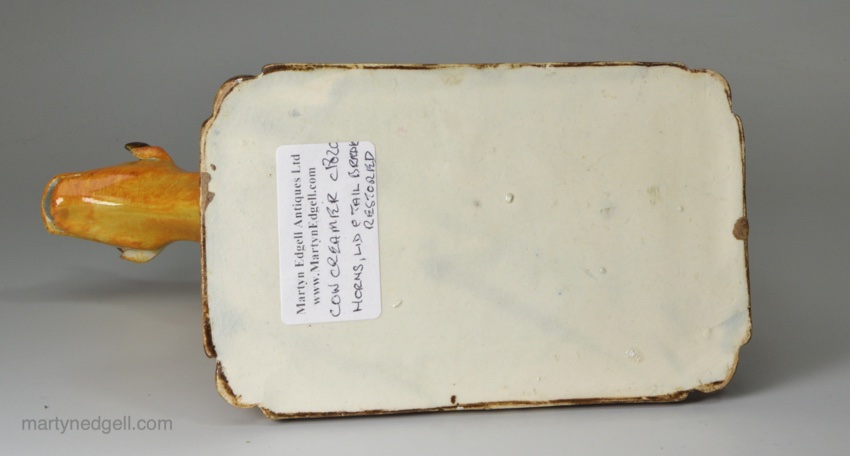 Martyn Edgell Antiques Ltd
www.MartynEdgell.com
COW CREAMER C1820
HORNS, LID & TAIL
RESTORED
martynedgell.com